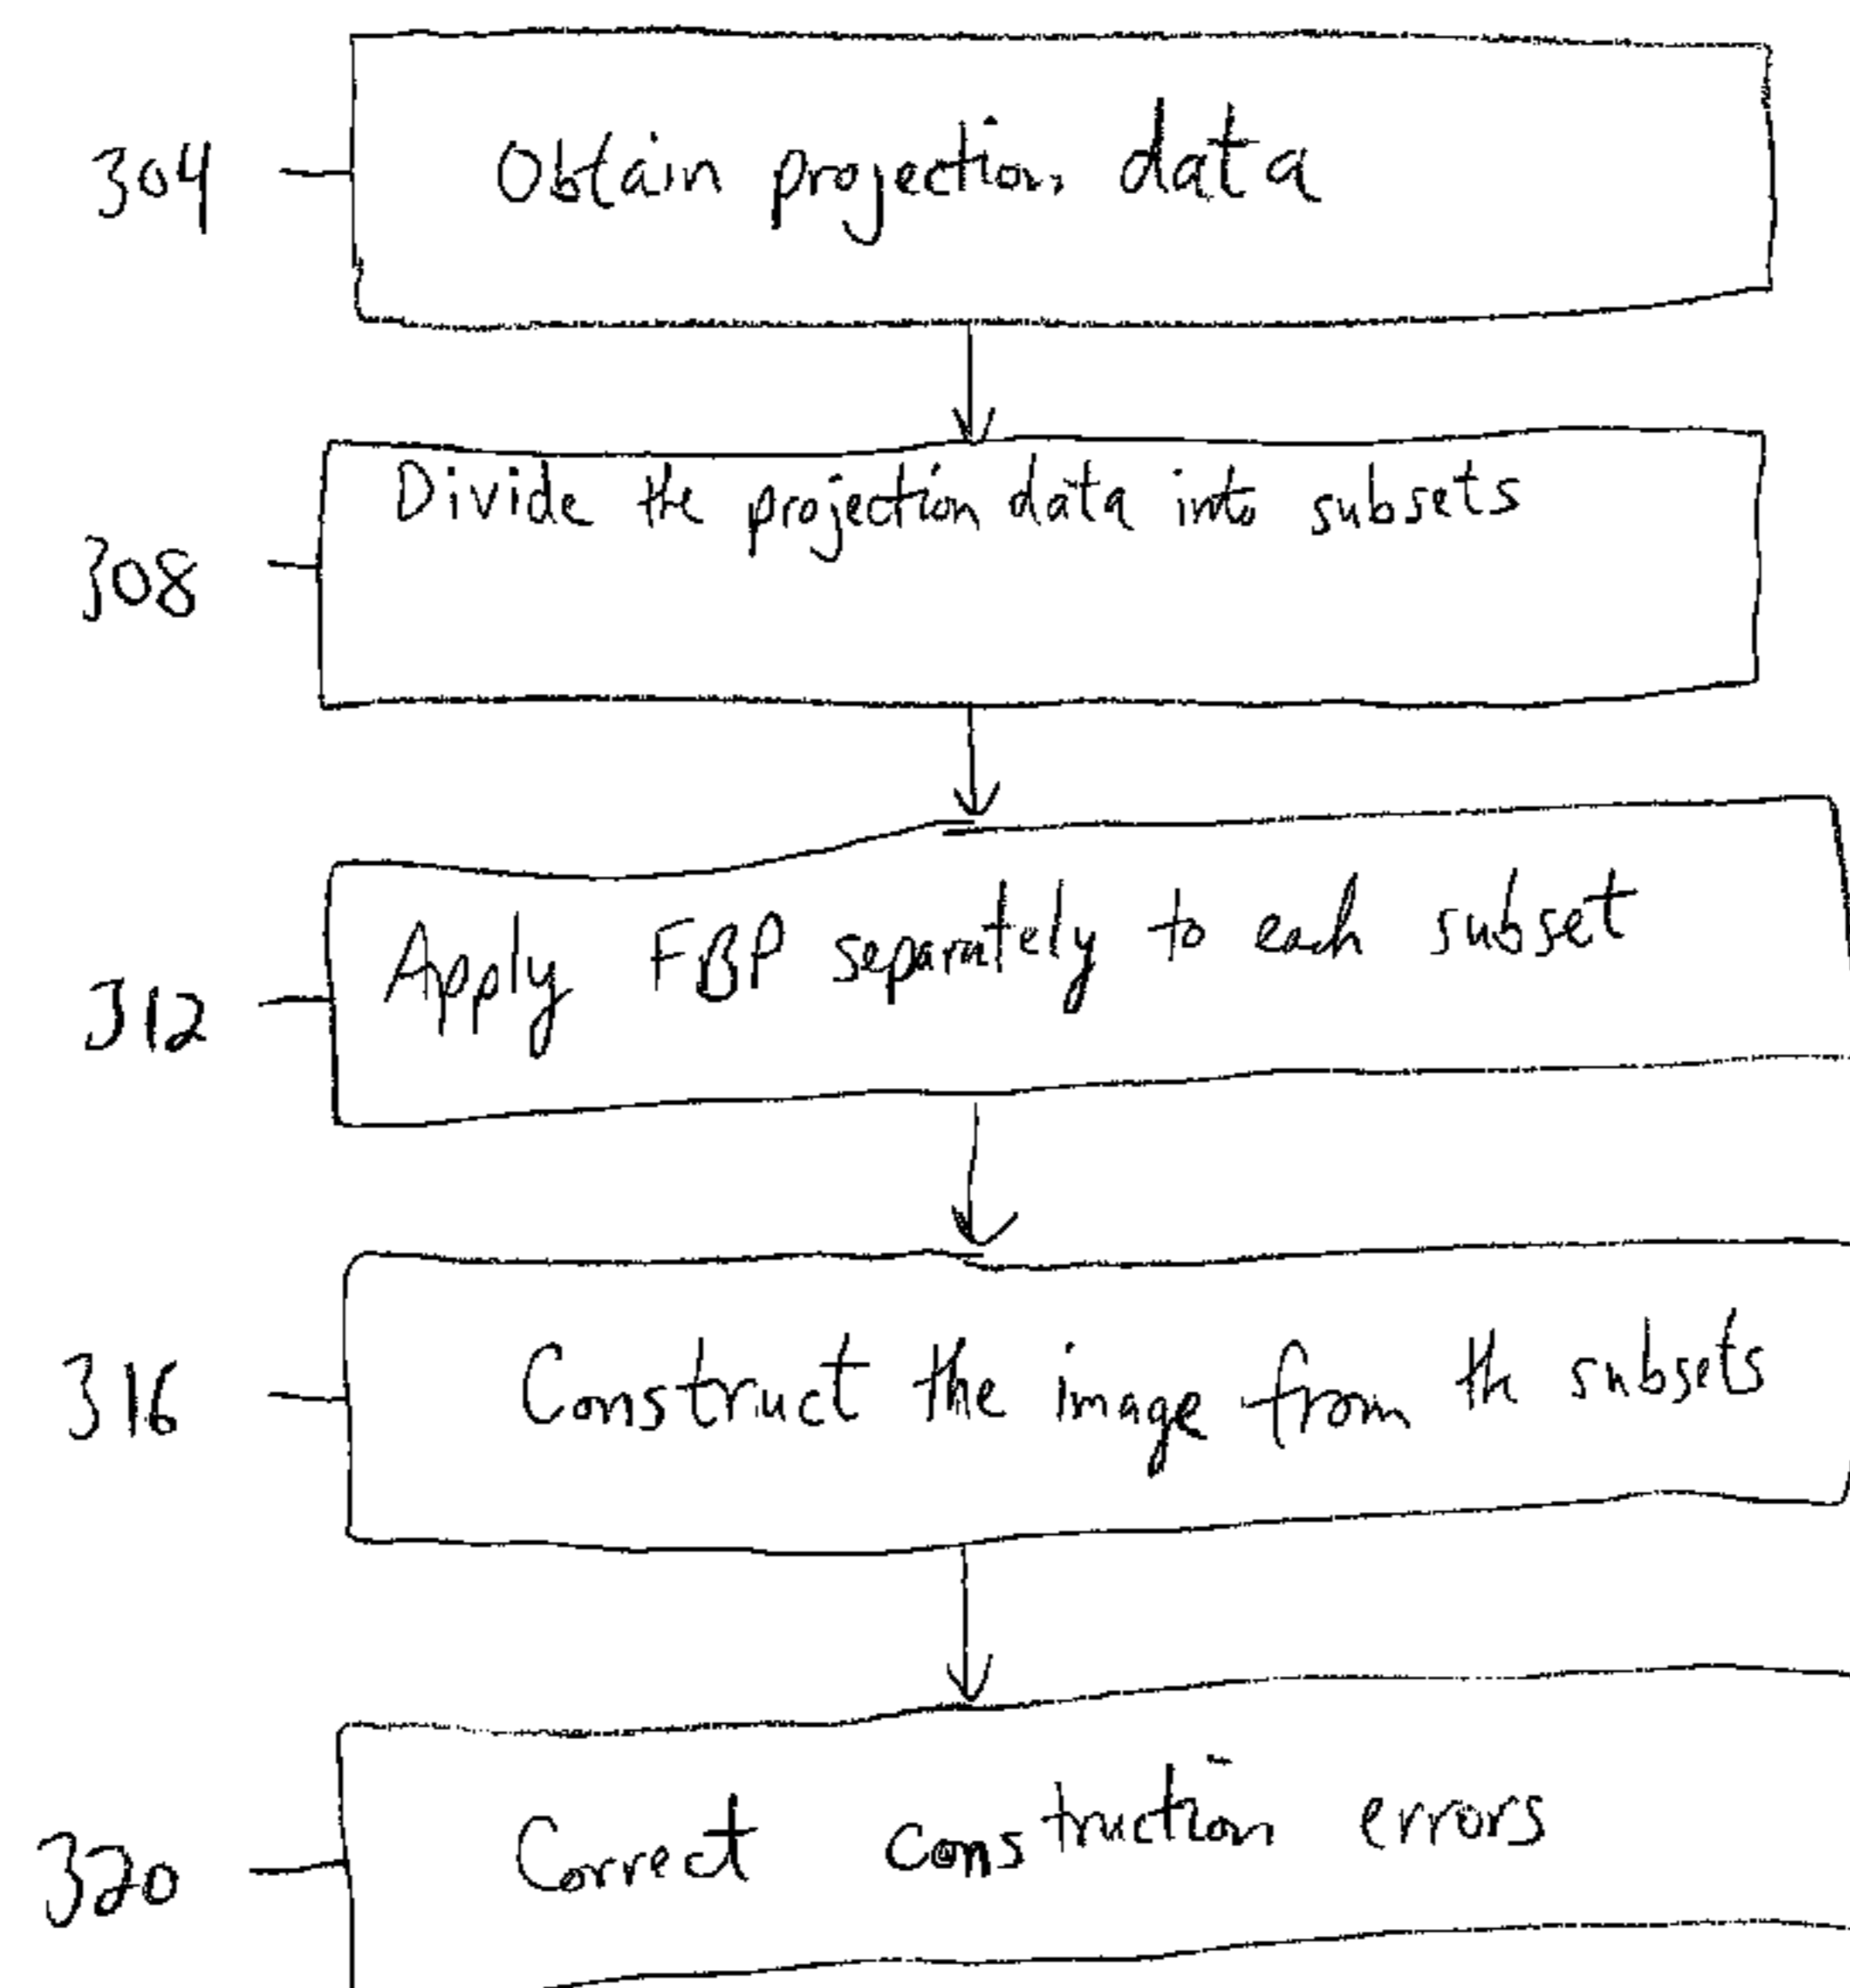 304 Obtain projection data
308 Divide the projection data into subsets
312 Apply FBP separately to each subset
316 Construct the image from th subsets
320 Correct construction errors